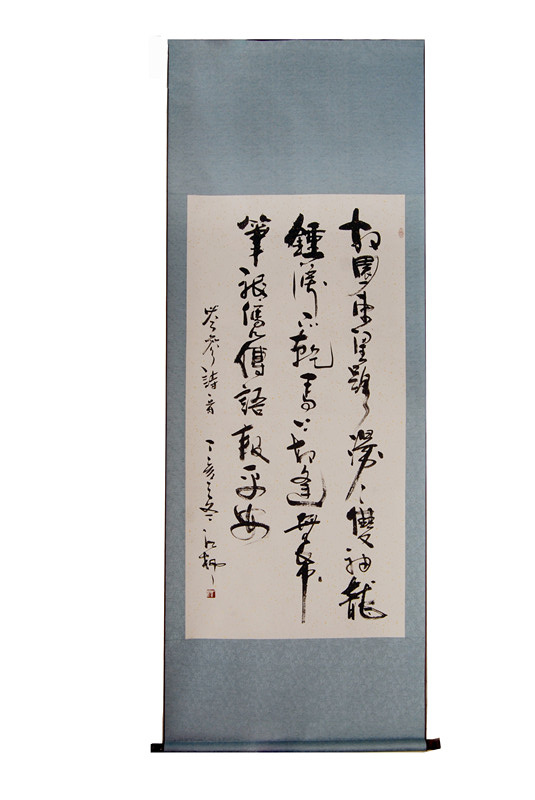 故園東望路漫漫雙袖龍
鍾淚不乾馬上相逢無帋
筆憑傳語報平安
岑參詩 丁亥之冬